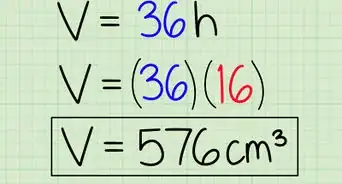 V = 36h
V = (36)(16)
V = 576 cm³